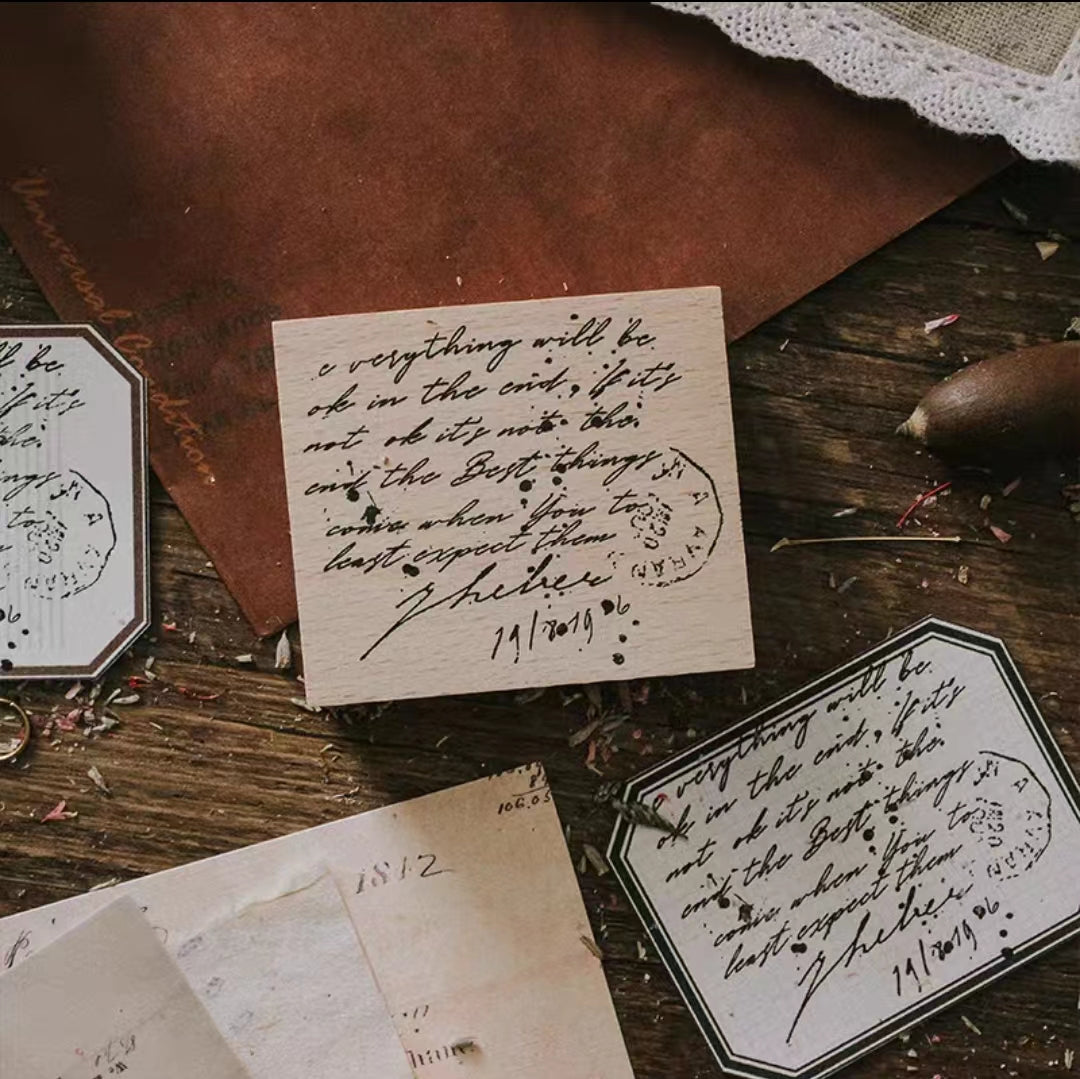 Universal Condition
ll be
If it's
the.
ngs
to
everything will be
ok in the end, If it's
not ok it's not the.
end the Best things
come when You to
least expect them
19/8019
1820
everything will be
ok in the end, If it's
not ok it's not the.
end the Best things
come when You to
least expect them
19/8019
1820
106.05
1812